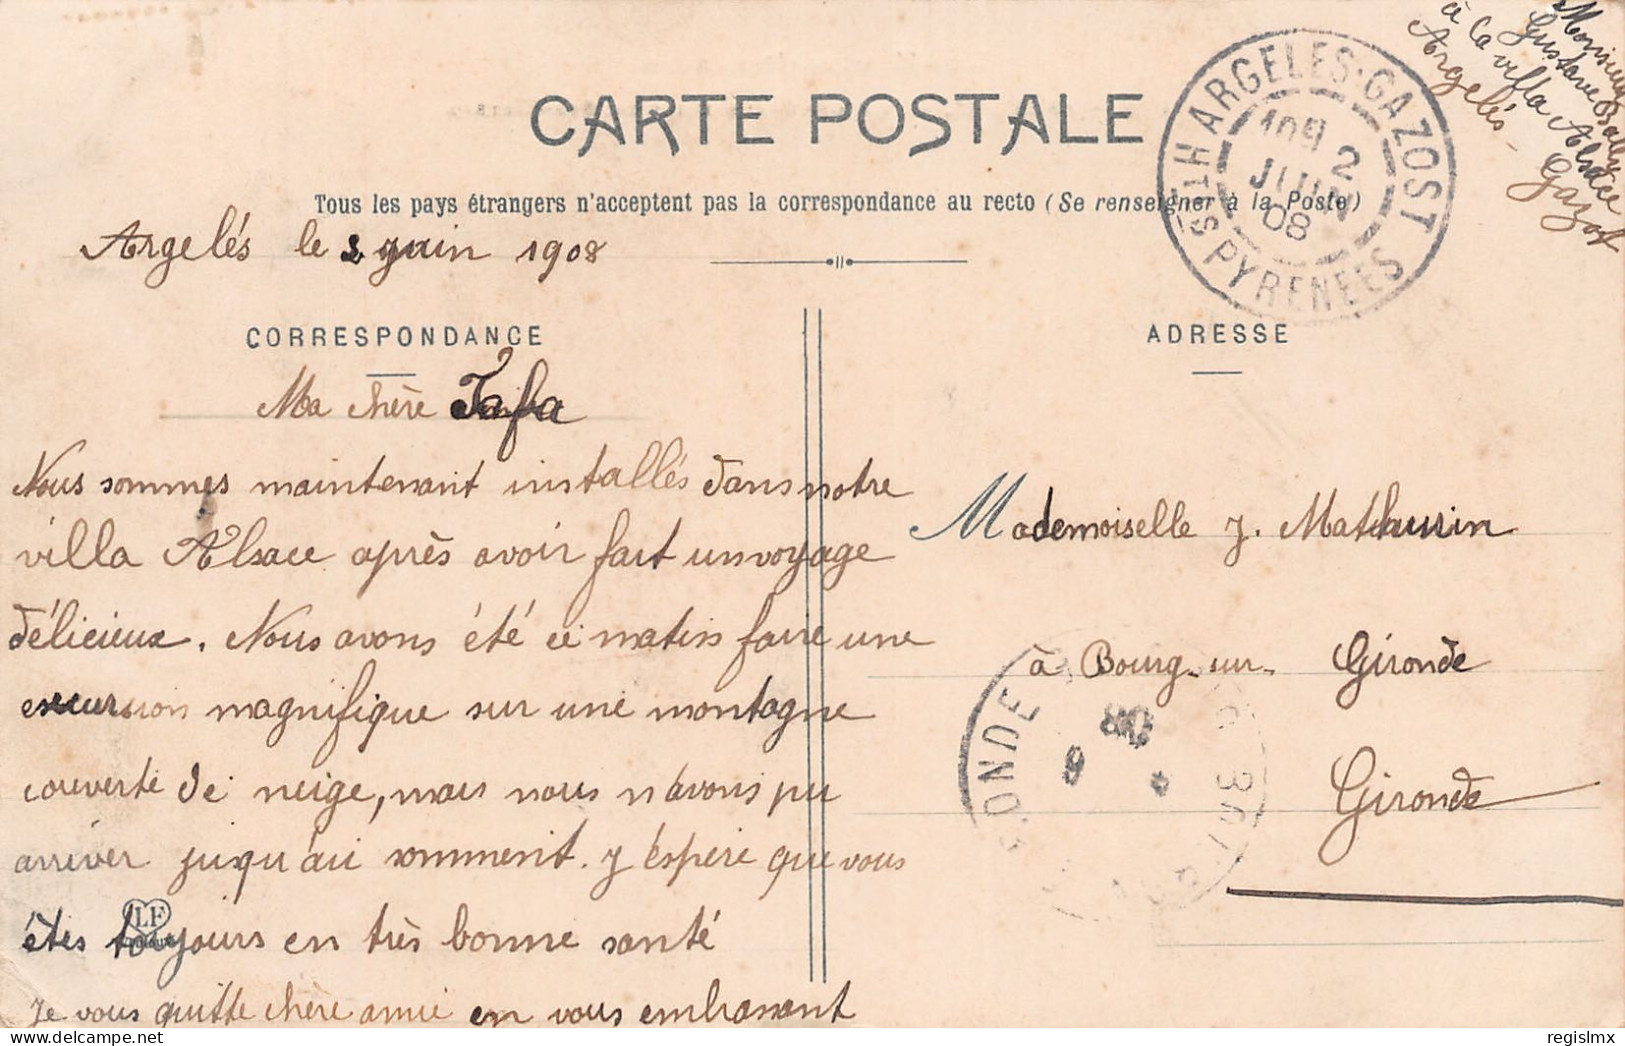 CARTE POSTALE
Tous les pays étrangers n'acceptent pas la correspondance au recto (Se renseigner à la Poste)
Monsieur
Gustave Bally
à la villa Alsace
Argelès-Gazost
ARGELES-GAZOST
Htes PYRENEES
2
JUIN
08
Argelés le 2 juin 1908
CORRESPONDANCE
Ma chère Fafa
Nous sommes maintenant installés dans notre
villa Alsace après avoir fait un voyage
délicieux. Nous avons été ce matin faire une
excursion magnifique sur une montagne
couverte de neige, mais nous n'avons pu
arriver jusqu'au somment. J'éspère que vous
êtes toujours en très bonne santé
Je vous quitte chère amie en vous embrassant
LF
ADRESSE
Mademoiselle J. Mathurin
à Bourg-sur-Gironde
Gironde
08
6
regislmx